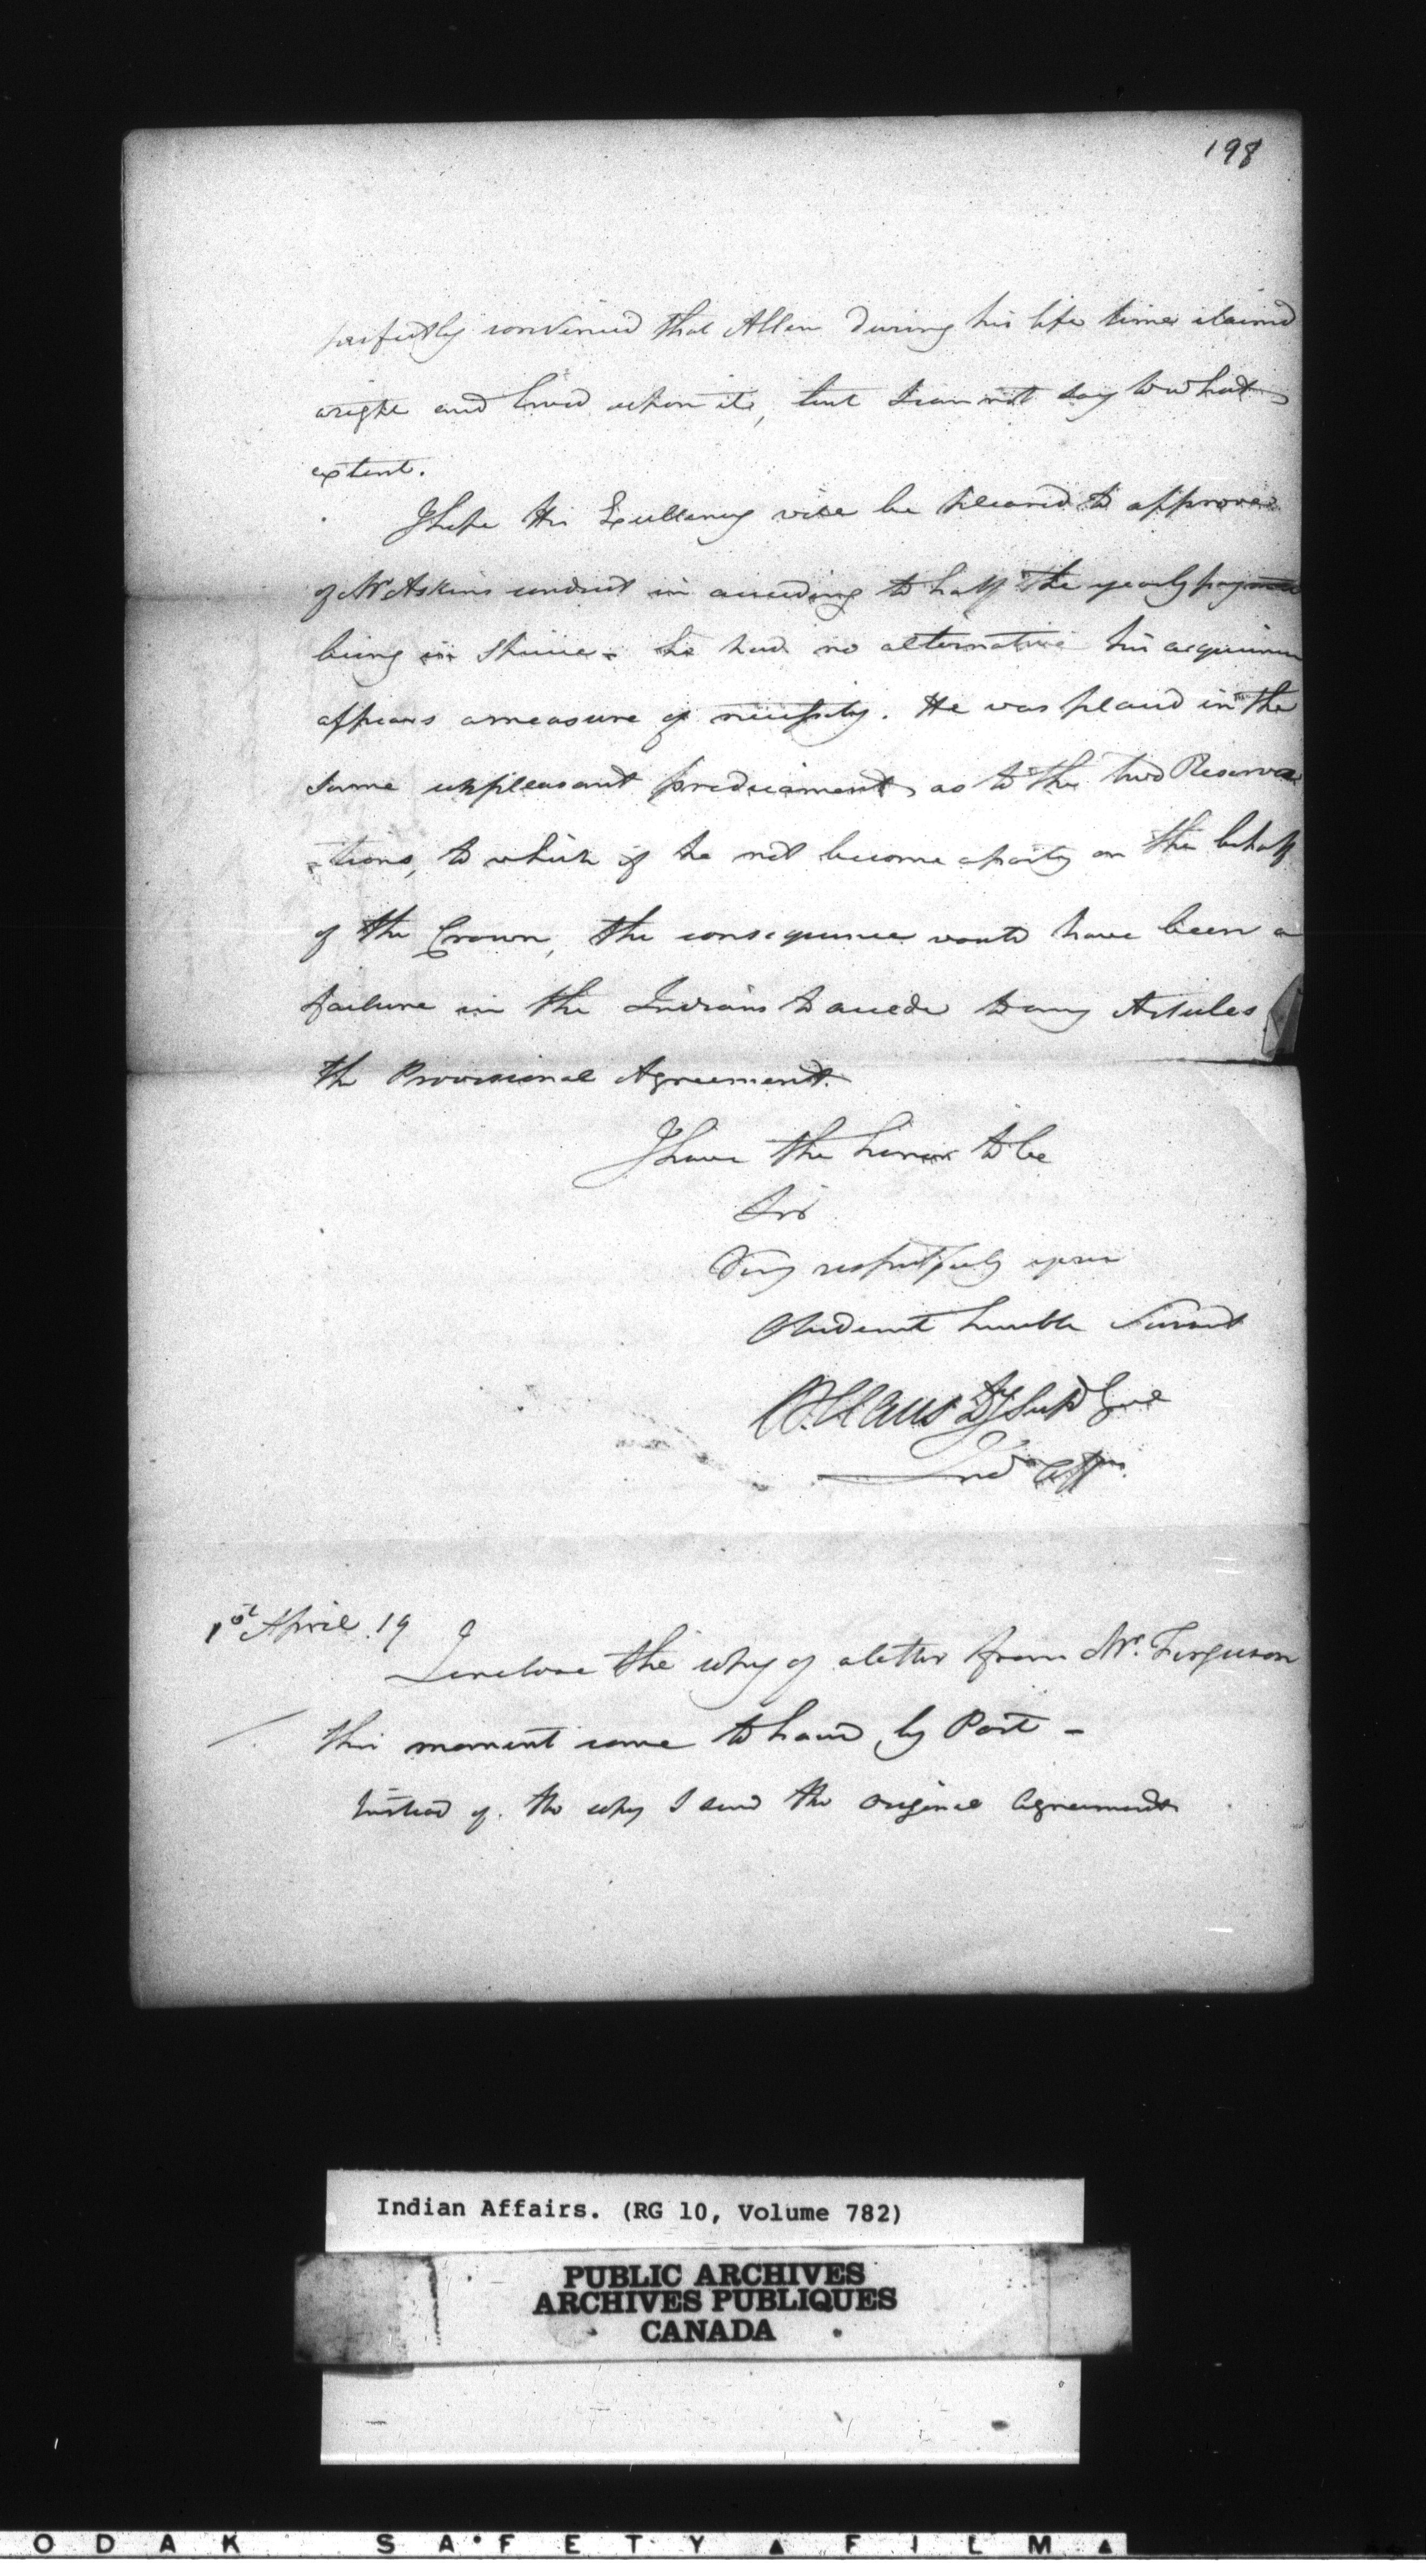 198
perfectly convinced that Allen during his life time claimed
aright and lived upon it, but I cannot say to what
extent.
I hope His Excellency will be pleased to approve
of Mr Askins conduct in acceeding to half the yearly payment
being in Specie - he had no alternative his acquiescence
appears a measure of necessity. He was placed in the
same unpleasant predicament as to the two Reserva
-tions, to which if he not become a party on the behalf
of the Crown, the consequence would have been a
failure in the Indians to accede to any Articles
th Provisional Agreement.
I have the honor to be
Sir
Very respectfully your
Obedient humble Servant
W. Claus Dy Supt Genl
Ind Affrs.
1st April 19
I enclose the copy of a letter from Mr. Ferguson
this moment came to hand by Post -
Instead of the copy I send the original Agreement
Indian Affairs. (RG 10, Volume 782)
PUBLIC ARCHIVES
ARCHIVES PUBLIQUES
CANADA
ODAK SAFETY FILM